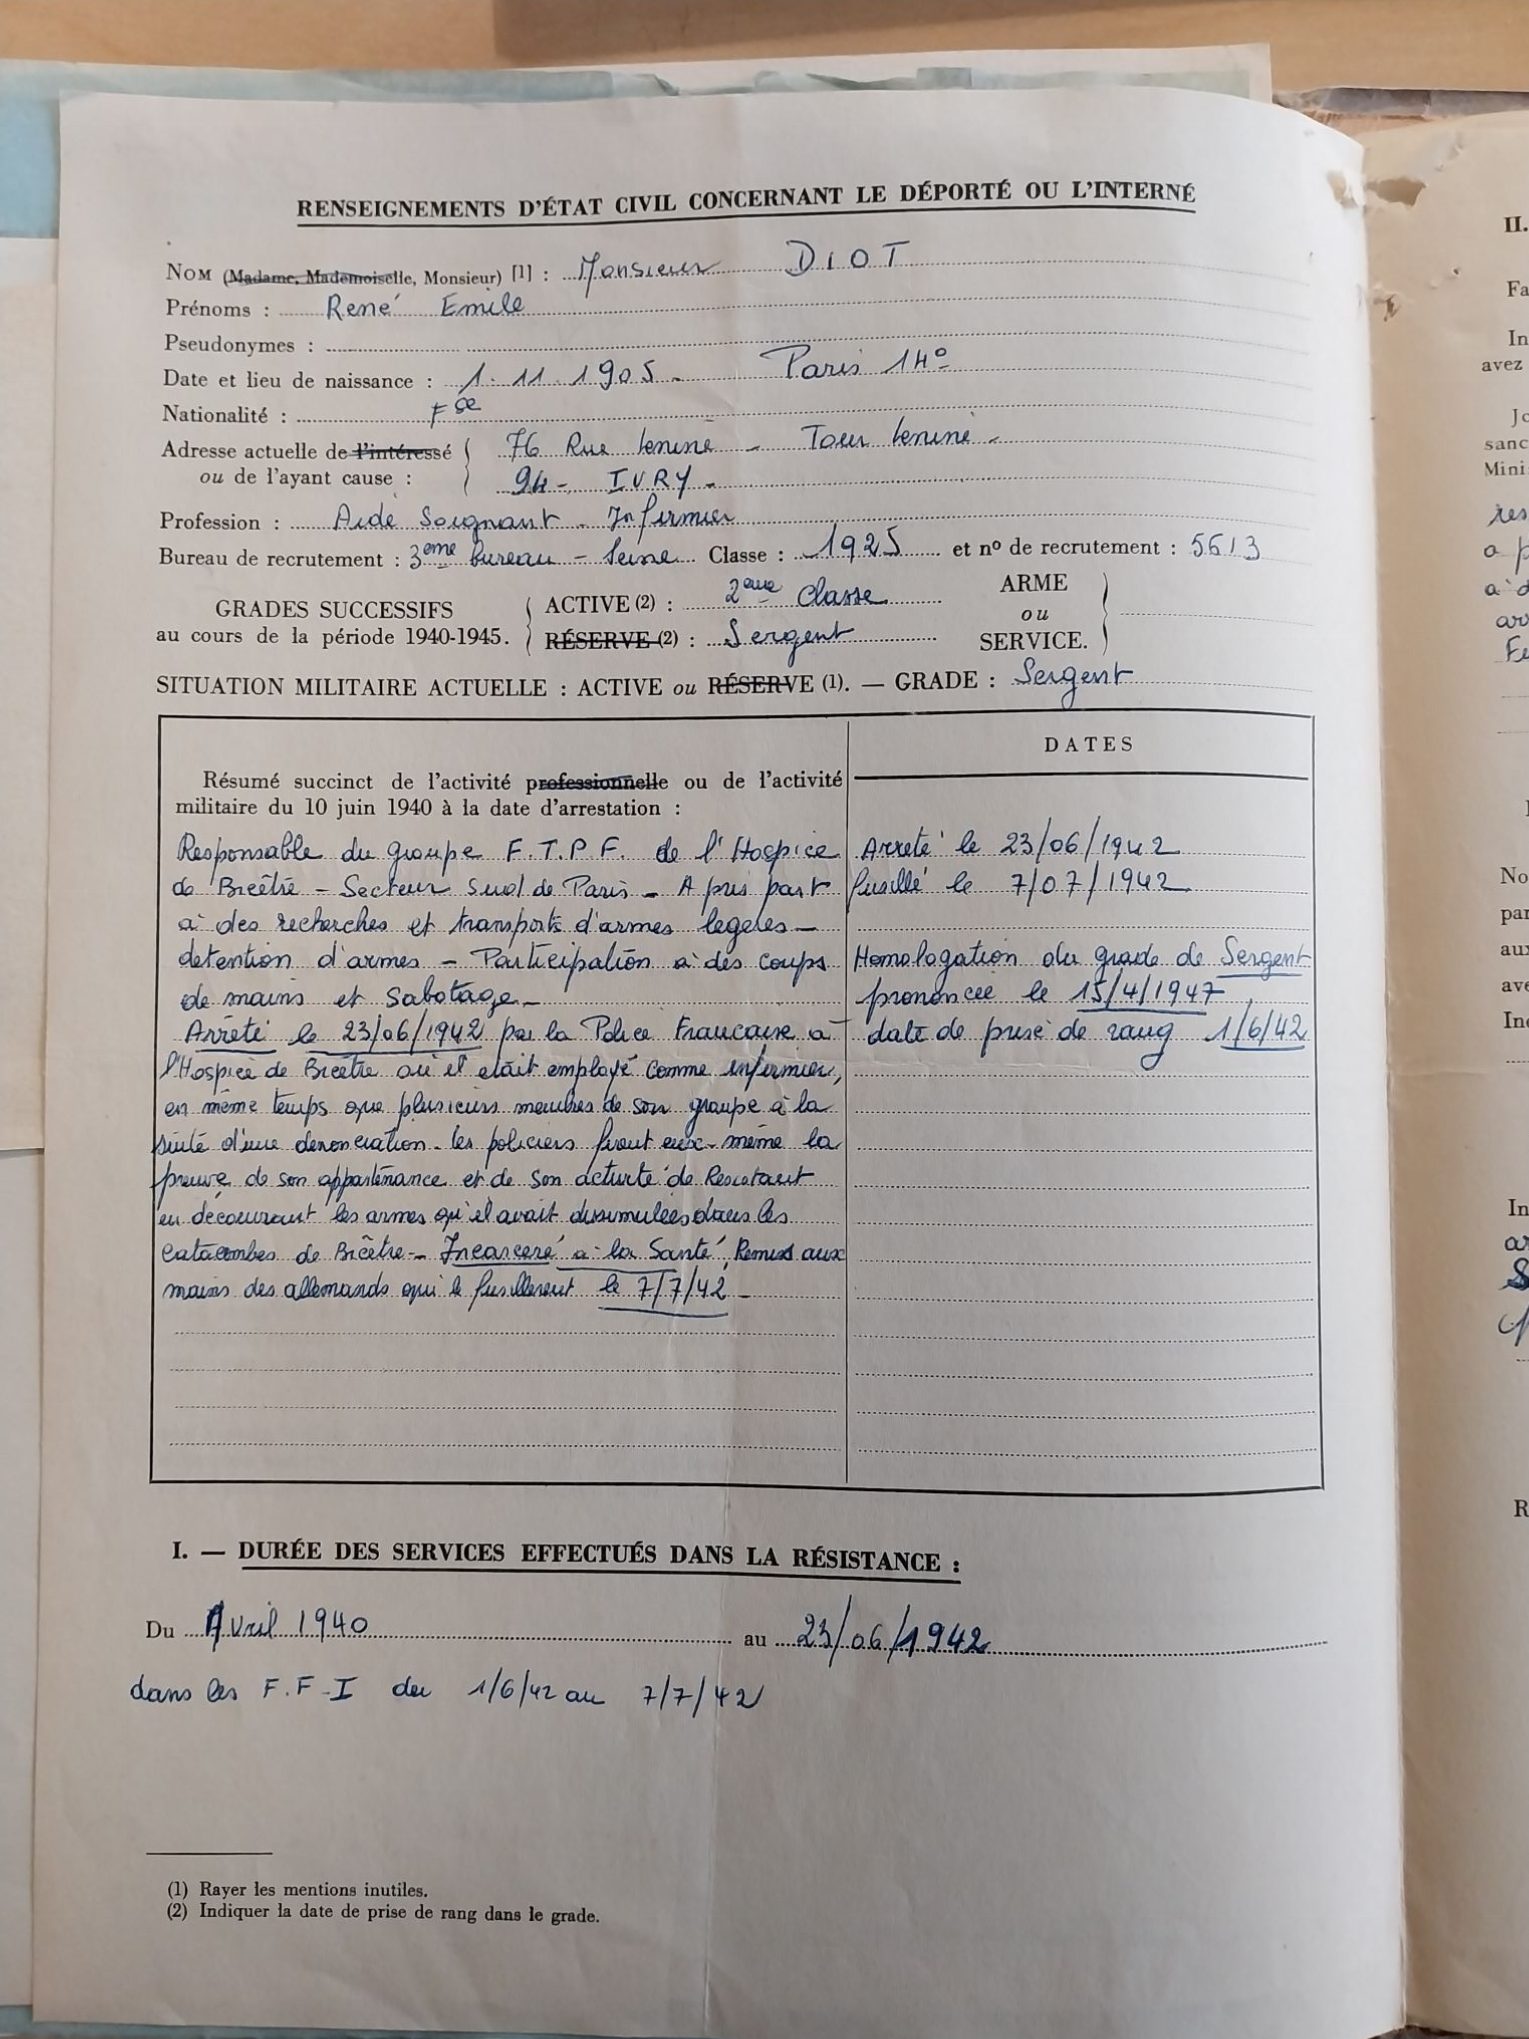 RENSEIGNEMENTS D'ÉTAT CIVIL CONCERNANT LE DÉPORTÉ OU L'INTERNÉ
NOM (Madame, Mademoiselle, Monsieur) [1] : Monsieur DIOT
Prénoms : René Emile
Pseudonymes :
Date et lieu de naissance : 1.11.1905 - Paris 14°
Nationalité : Fse
Adresse actuelle de l'intéressé 76 Rue Lenine - Tour Lenine -
ou de l'ayant cause : 94 - IVRY -
Profession : Aide Soignant - Infirmier
Bureau de recrutement : 3eme bureau - Seine Classe : 1925 et nº de recrutement : 5613
GRADES SUCCESSIFS au cours de la période 1940-1945. ACTIVE (2) : 2eme Classe ARME ou SERVICE.
RÉSERVE (2) : Sergent
SITUATION MILITAIRE ACTUELLE : ACTIVE ou RÉSERVE (1). — GRADE : Sergent
Résumé succinct de l'activité professionnelle ou de l'activité
militaire du 10 juin 1940 à la date d'arrestation :
Responsable du groupe F.T.P.F. de l'Hospice
de Bicêtre - Secteur Sud de Paris - A pris part
à des recherches et transports d'armes legeres -
detention d'armes - Participation à des coups
de mains et Sabotage -
Arrêté le 23/06/1942 par la Police Francaise à
l'Hospice de Bicetre où il etait employé comme infirmier,
en même temps que plusieurs membres de son groupe à la
suite d'une denonciation - les policiers firent eux-même la
preuve de son appartenance et de son activité de Resistant
en découvrant les armes qu'il avait dissimulées dans les
Catacombes de Bicêtre - Incarcéré à la Santé, Remis aux
mains des allemands qui le fusillerent le 7/7/42 -
DATES
Arreté le 23/06/1942
fusillé le 7/07/1942
Homologation du grade de Sergent
prononcée le 15/4/1947,
date de prise de rang 1/6/42
I. — DURÉE DES SERVICES EFFECTUÉS DANS LA RÉSISTANCE :
Du Avril 1940 au 23/06/1942
dans les F.F-I du 1/6/42 au 7/7/42
(1) Rayer les mentions inutiles.
(2) Indiquer la date de prise de rang dans le grade.
II.
Fa
In
avez
Jo
sanc
Mini
res
a p
a d
No
par
aux
ave
Ind
In
R